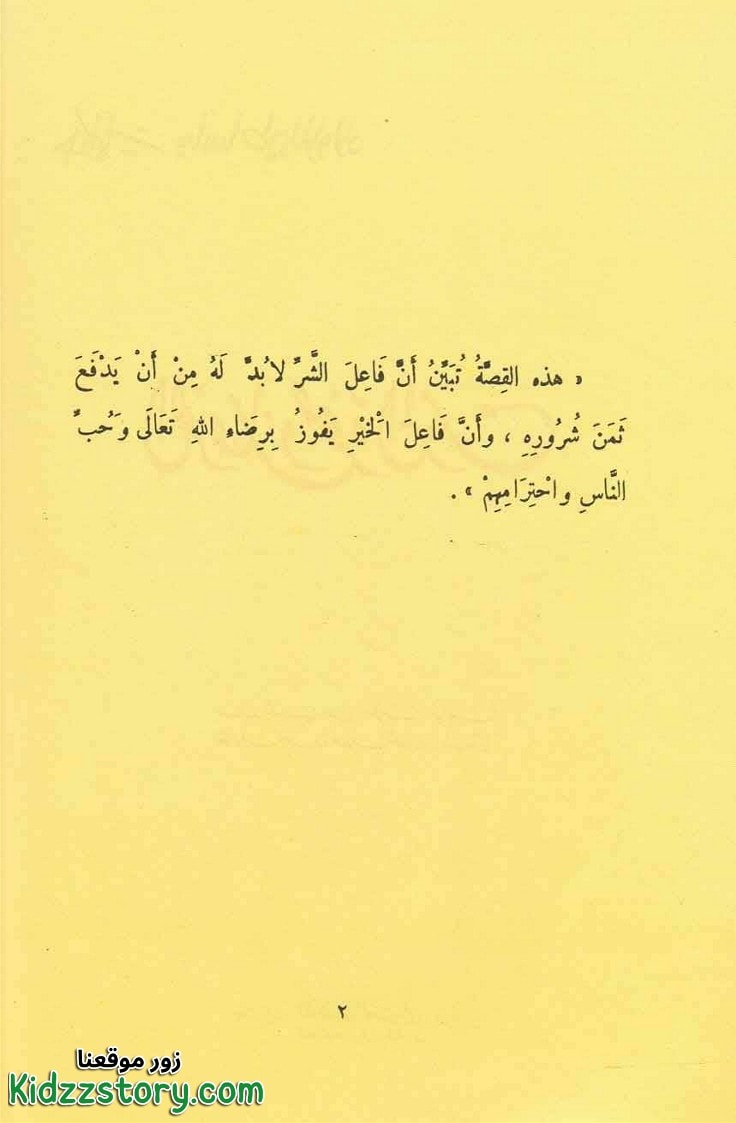 « هذه القِصَّةُ تُبَيِّنُ أَنَّ فَاعِلَ الشَّرِّ لاَبُدَّ لَهُ مِنْ أَنْ يَدْفَعَ
ثَمَنَ شُرُورِهِ ، وأَنَّ فَاعِلَ الْخَيْرِ يَفُوزُ بِرِضَاءِ اللهِ تَعَالَى وَحُبِّ
النَّاسِ واحْتِرَامِهِمْ » .
٢
زور موقعنا
Kidzzstory.com